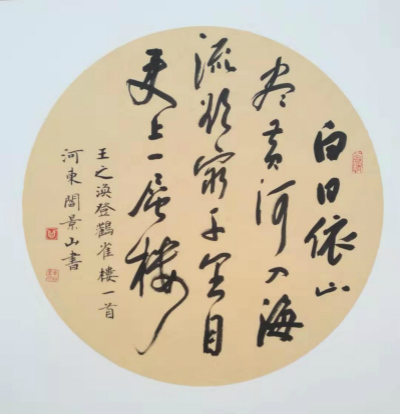 白日依山
尽黄河入海
流欲窮千里目
更上一层樓
王之渙登鸛雀樓一首
河東閻景山書